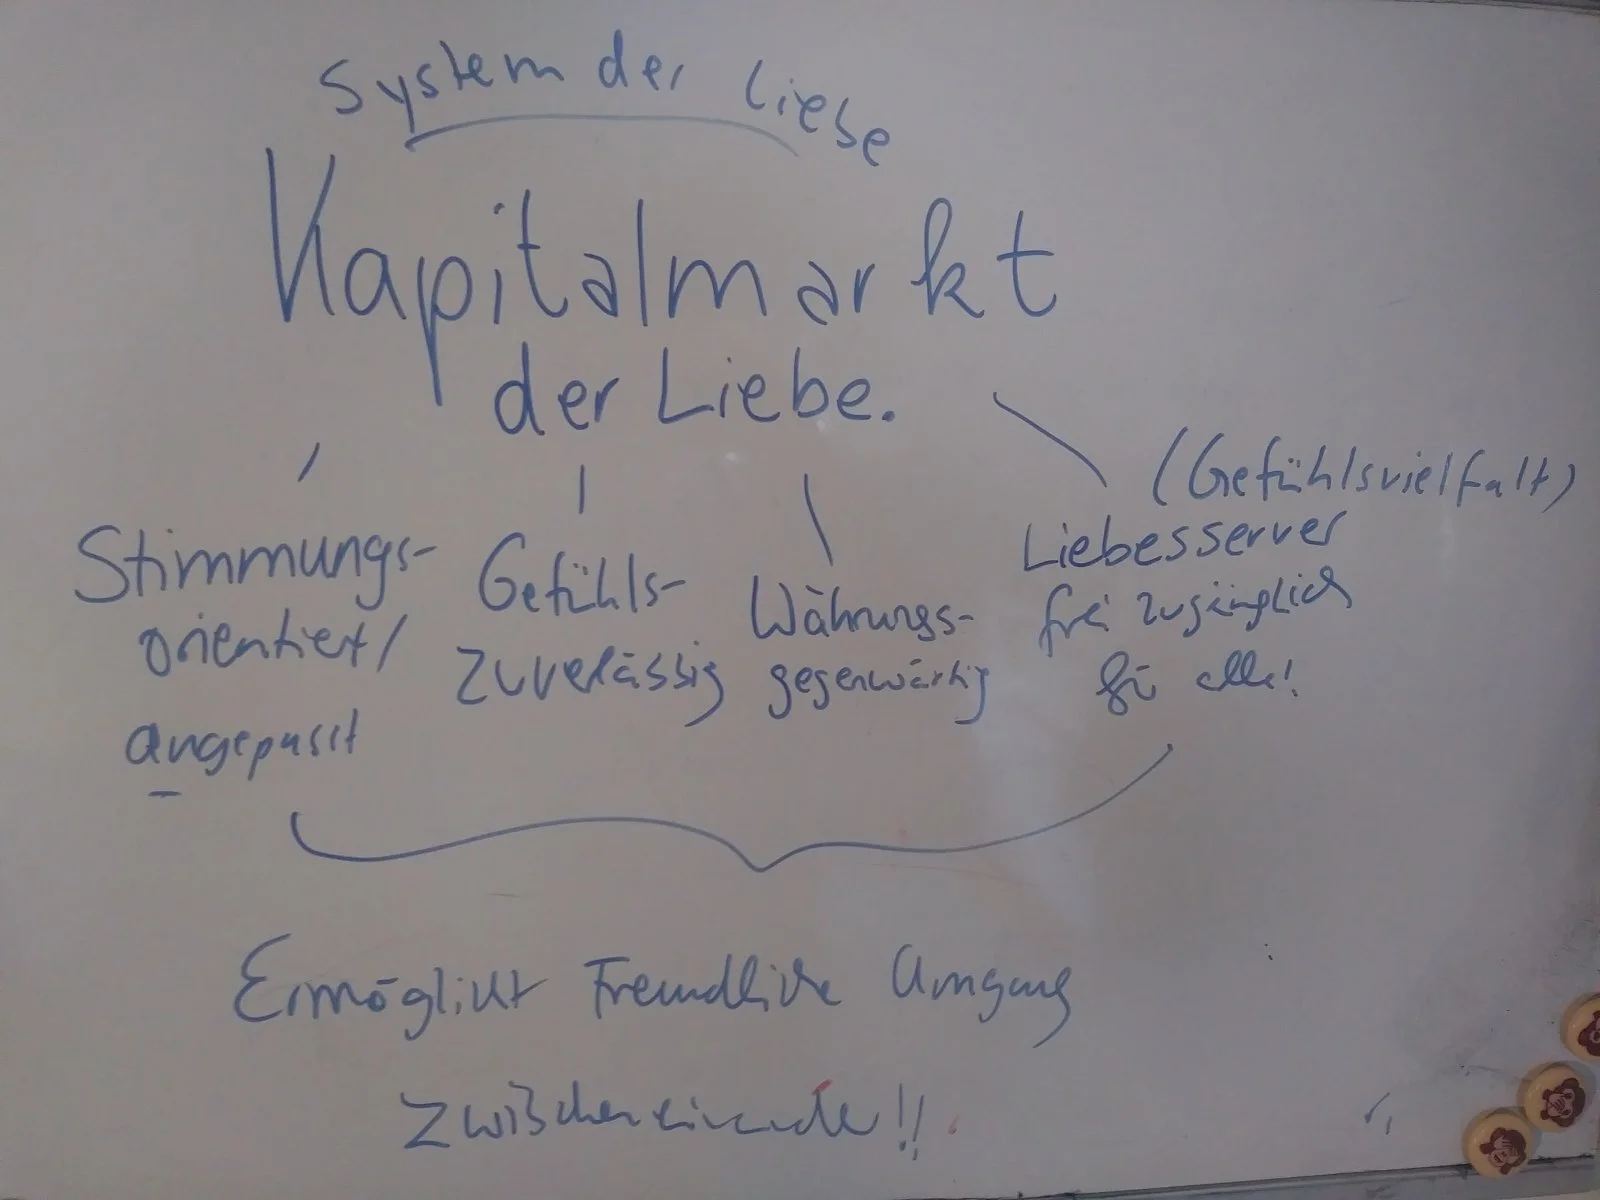 System der Liebe
Kapitalmarkt
der Liebe.
Stimmungs-
orientiert/
angepasst
Gefühls-
zuverlässig
Währungs-
gegenwärtig
(Gefühlsvielfalt)
Liebesserver
frei zugänglich
für alle!
Ermöglicht Freundliche Umgang